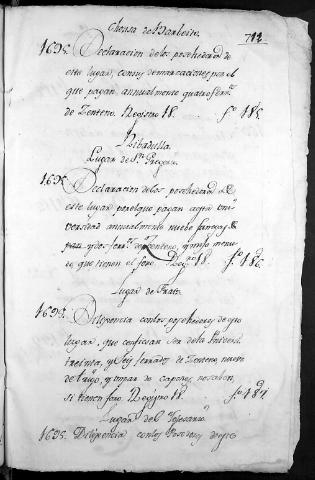 Chousa de Barbeito.
712
1695. Declaracion de los poseedores de
este lugar, con sus demarcaciones por el
que pagan annualmente quatro ferr.s
de Zenteno. Registro 18. f.o 185.
Ribadulla.
Lugar de S.n Gregorio.
1695. Declaracion de los poseedores de
este lugar por el que pagan a esta Uni-
versidad annualmente nuebe fanegas
y dos ferr.s de Zenteno, y
que tienen el foro. Reg.ro 18. f.o 186.
Lugar de Prato.
1695. Diligencia con los poseedores de este
lugar, que confiesan ser de la Univers.d
treinta, y seis ferrados de Zenteno, nueve
de trigo, y un par de capones, no saben,
si tienen foro. Registro 18. f.o 187.
Lugar del
1695. Diligencia con los Poseedores de este